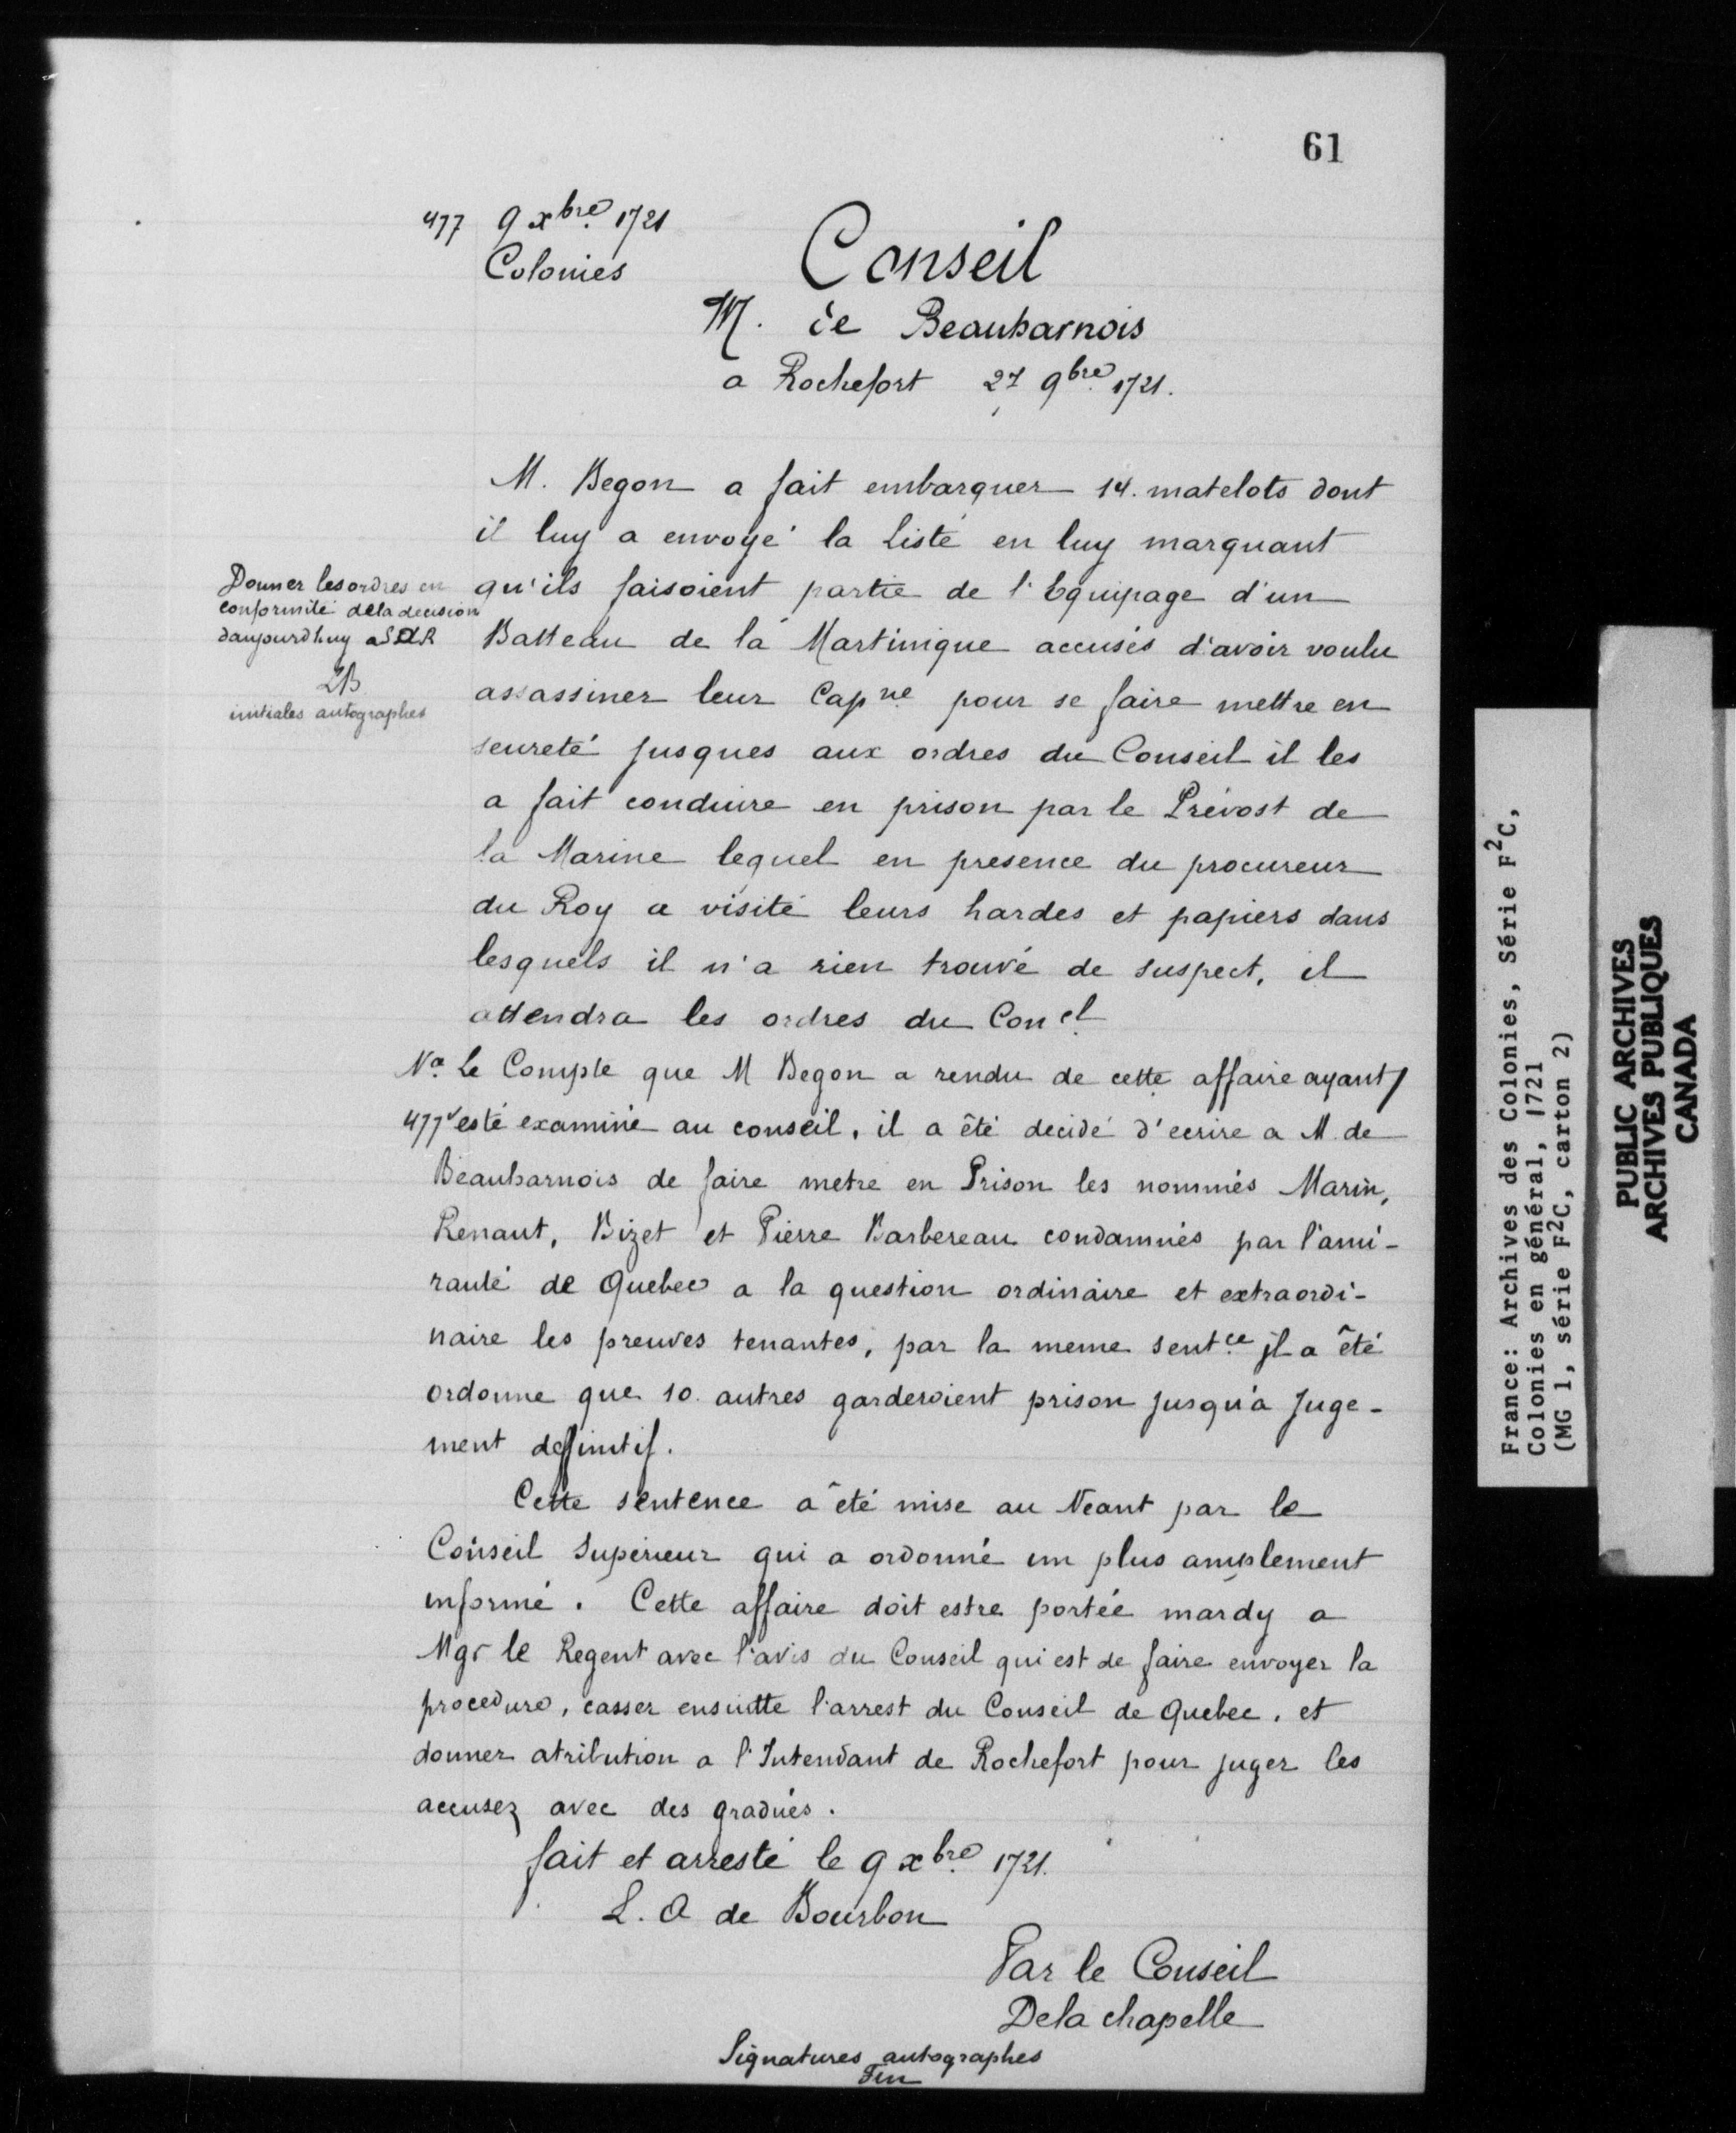 61
477 9 xbre 1721
Colonies
Conseil
M. de Beauharnois
a Rochefort 27 9bre 1721.
M. Begon a fait embarquer 14. matelots dont
il luy a envoyé la Liste en luy marquant
qu'ils faisoient partie de l'Equipage d'un
Batteau de la Martinique accusés d'avoir voulu
assassiner leur Capne pour se faire mettre en
seureté jusques aux ordres du Conseil il les
a fait conduire en prison par le Prévost de
la Marine lequel en presence du procureur
du Roy a visité leurs hardes et papiers dans
lesquels il n'a rien trouvé de suspect, il
attendra les ordres du Conel
Donner les ordres en
conformité dela decision
daujourdhuy a SAR
LB
initiales autographes
Na Le Compte que M Begon a rendu de cette affaire ayant
477v esté examiné au conseil, il a êté decidé d'ecrire a M. de
Beauharnois de faire metre en Prison les nommés Marin,
Renaut, Bizet et Pierre Barbereau condamnés par l'ami-
rauté de Quebec a la question ordinaire et extraordi-
naire les preuves tenantes, par la meme sentce il a êté
ordonne que 10. autres garderoient prison jusqu'a juge-
ment deffinitif.
Cette sentence a êté mise au Neant par le
Conseil Superieur qui a ordonné un plus amplement
informé. Cette affaire doit estre portée mardy a
Mgr le Regent avec l'avis du Conseil qui est de faire envoyer la
procedure, casser ensuitte l'arrest du Conseil de Quebec, et
donner atribution a l'Intendant de Rochefort pour juger les
accusez avec des gradués.
fait et arresté le 9 xbre 1721.
L. A de Bourbon
Par le Conseil
Dela chapelle
Signatures autographes
Fin
France: Archives des Colonies, Série F2C,
Colonies en général, 1721
(MG 1, série F2C, carton 2)
PUBLIC ARCHIVES
ARCHIVES PUBLIQUES
CANADA